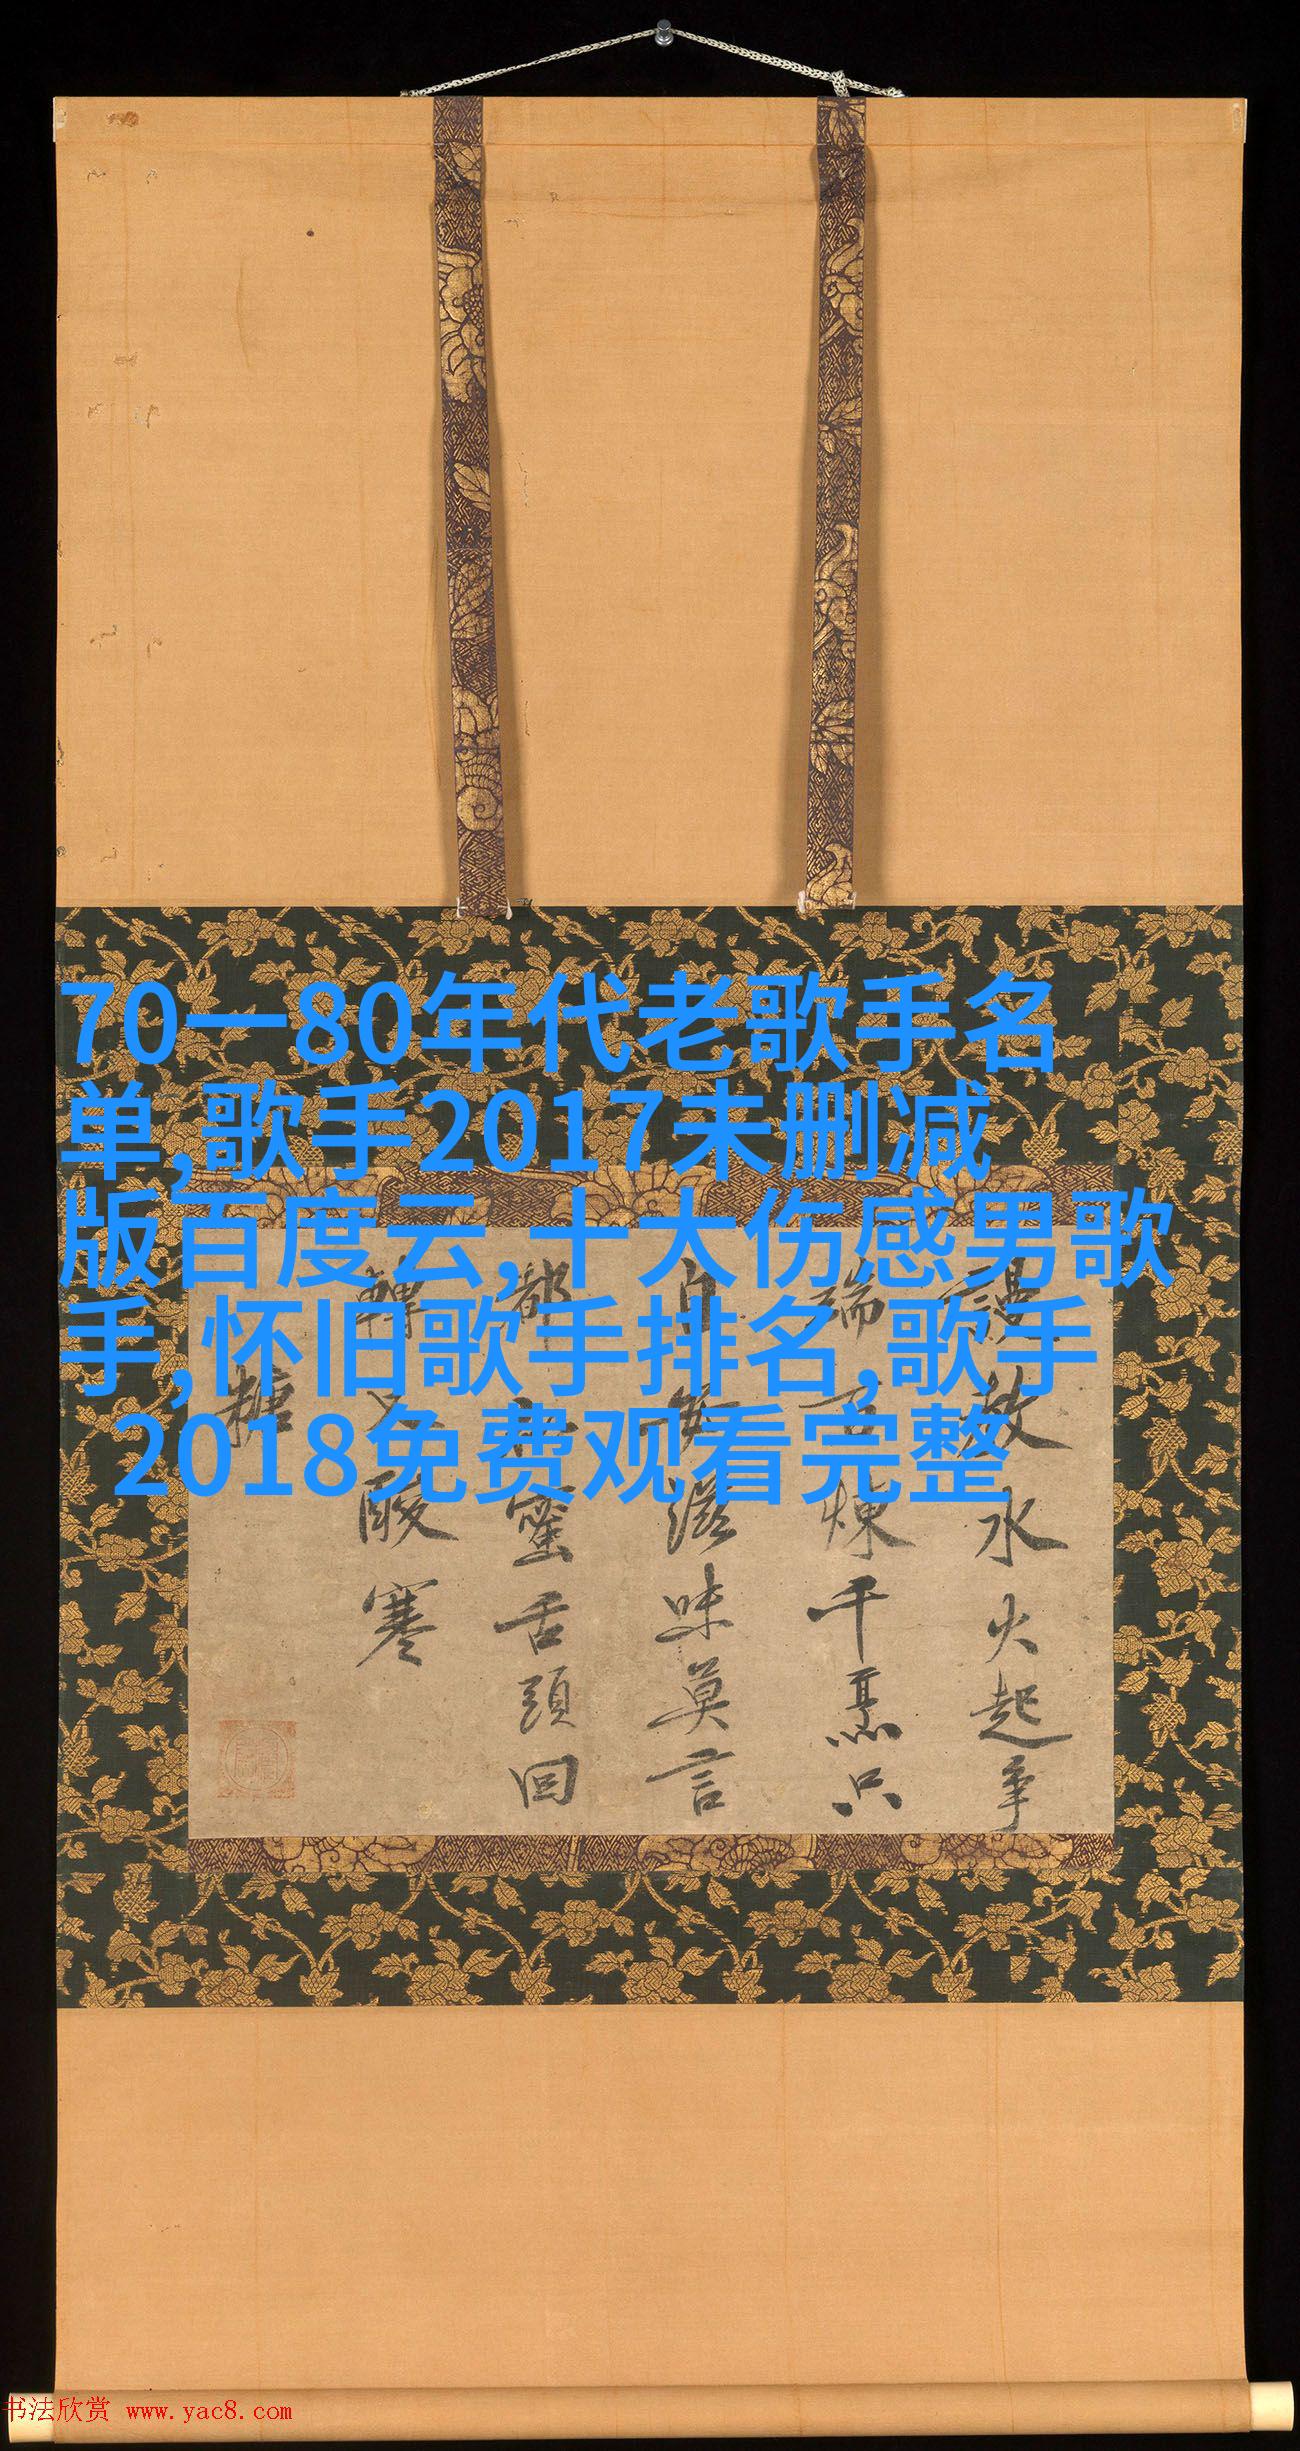 70一80年代老歌手名
单,歌手2017未删减
版百度云,十大伤感男歌
手,怀旧歌手排名,歌手
2018免费观看完整
謾水火起争
端百煉千烹只
自滋味莫言
都蜜舌頭回
轉又酸寒
糖
书法欣赏 www.yac8.com